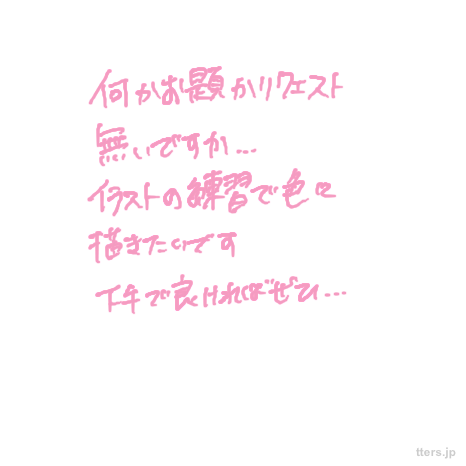 何かお題かリクエスト
無いですか...
イラストの練習で色々
描きたいです
下手で良ければぜひ...
tters.jp